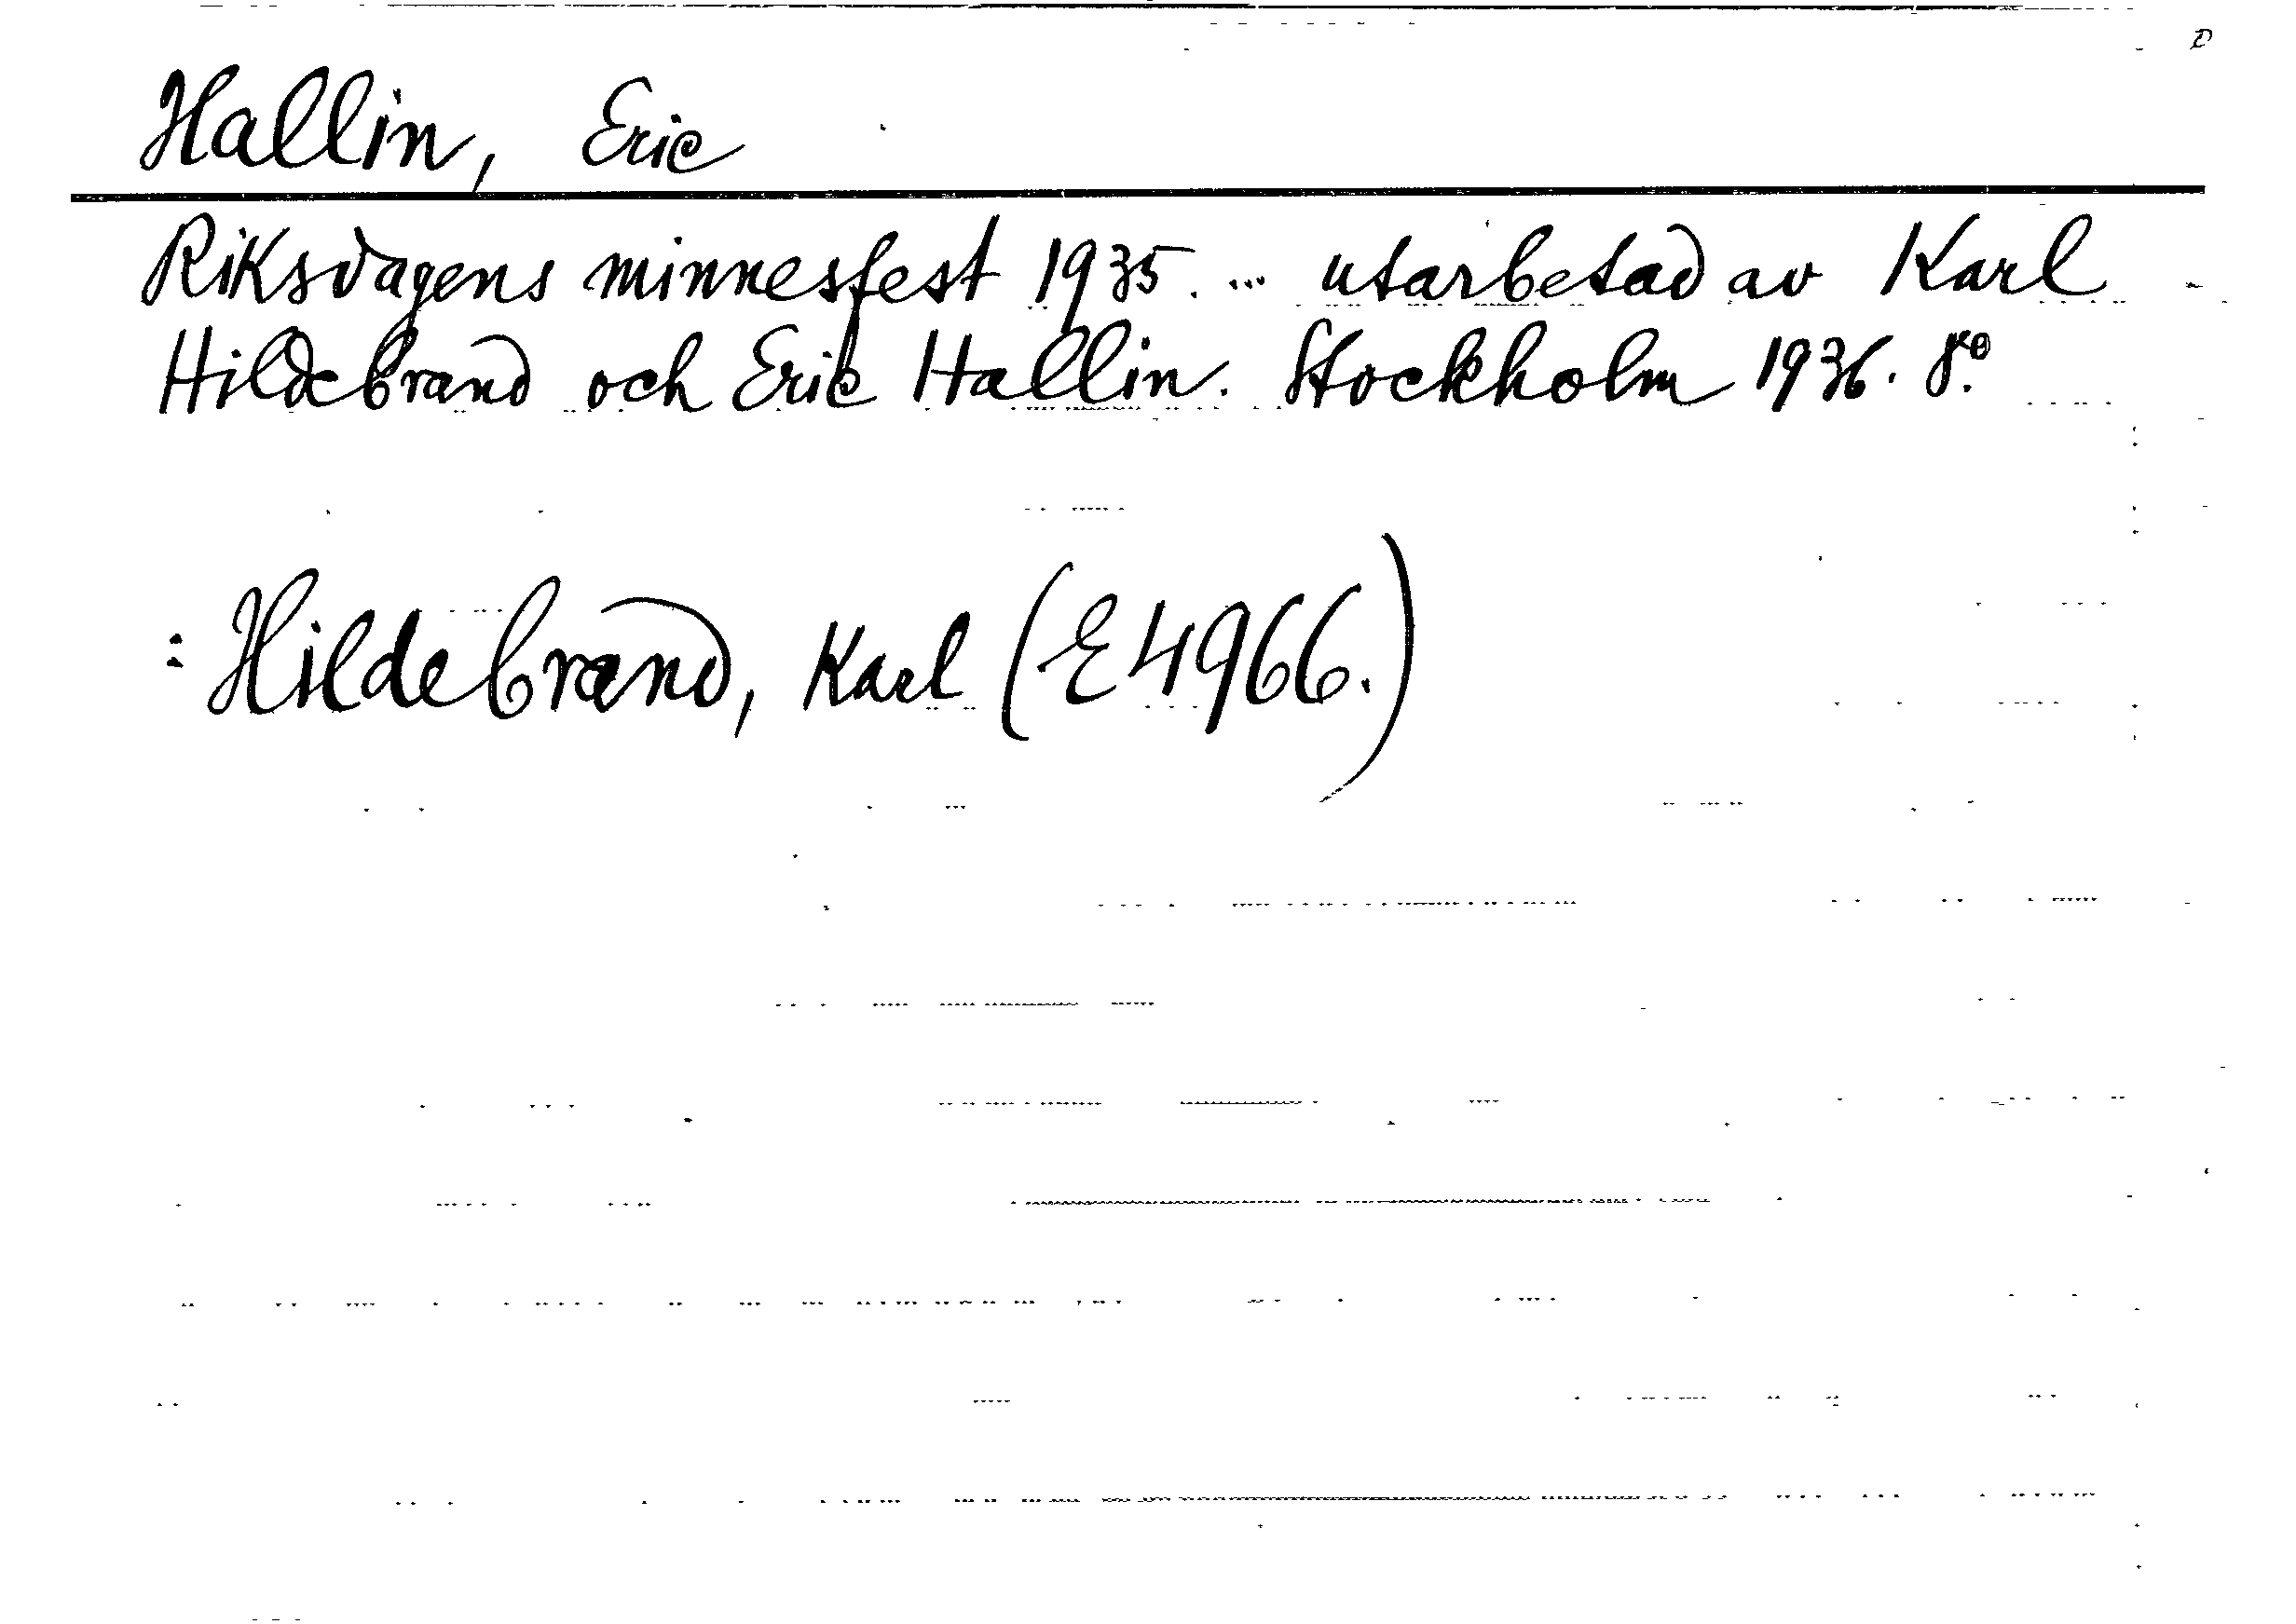 D
Hallin, Eric
Riksdagens minnesfest 1935. ... utarbetad av Karl
Hildebrand och Eric Hallin. Stockholm 1936. 8:o
: Hildebrand, Karl (E4966.)